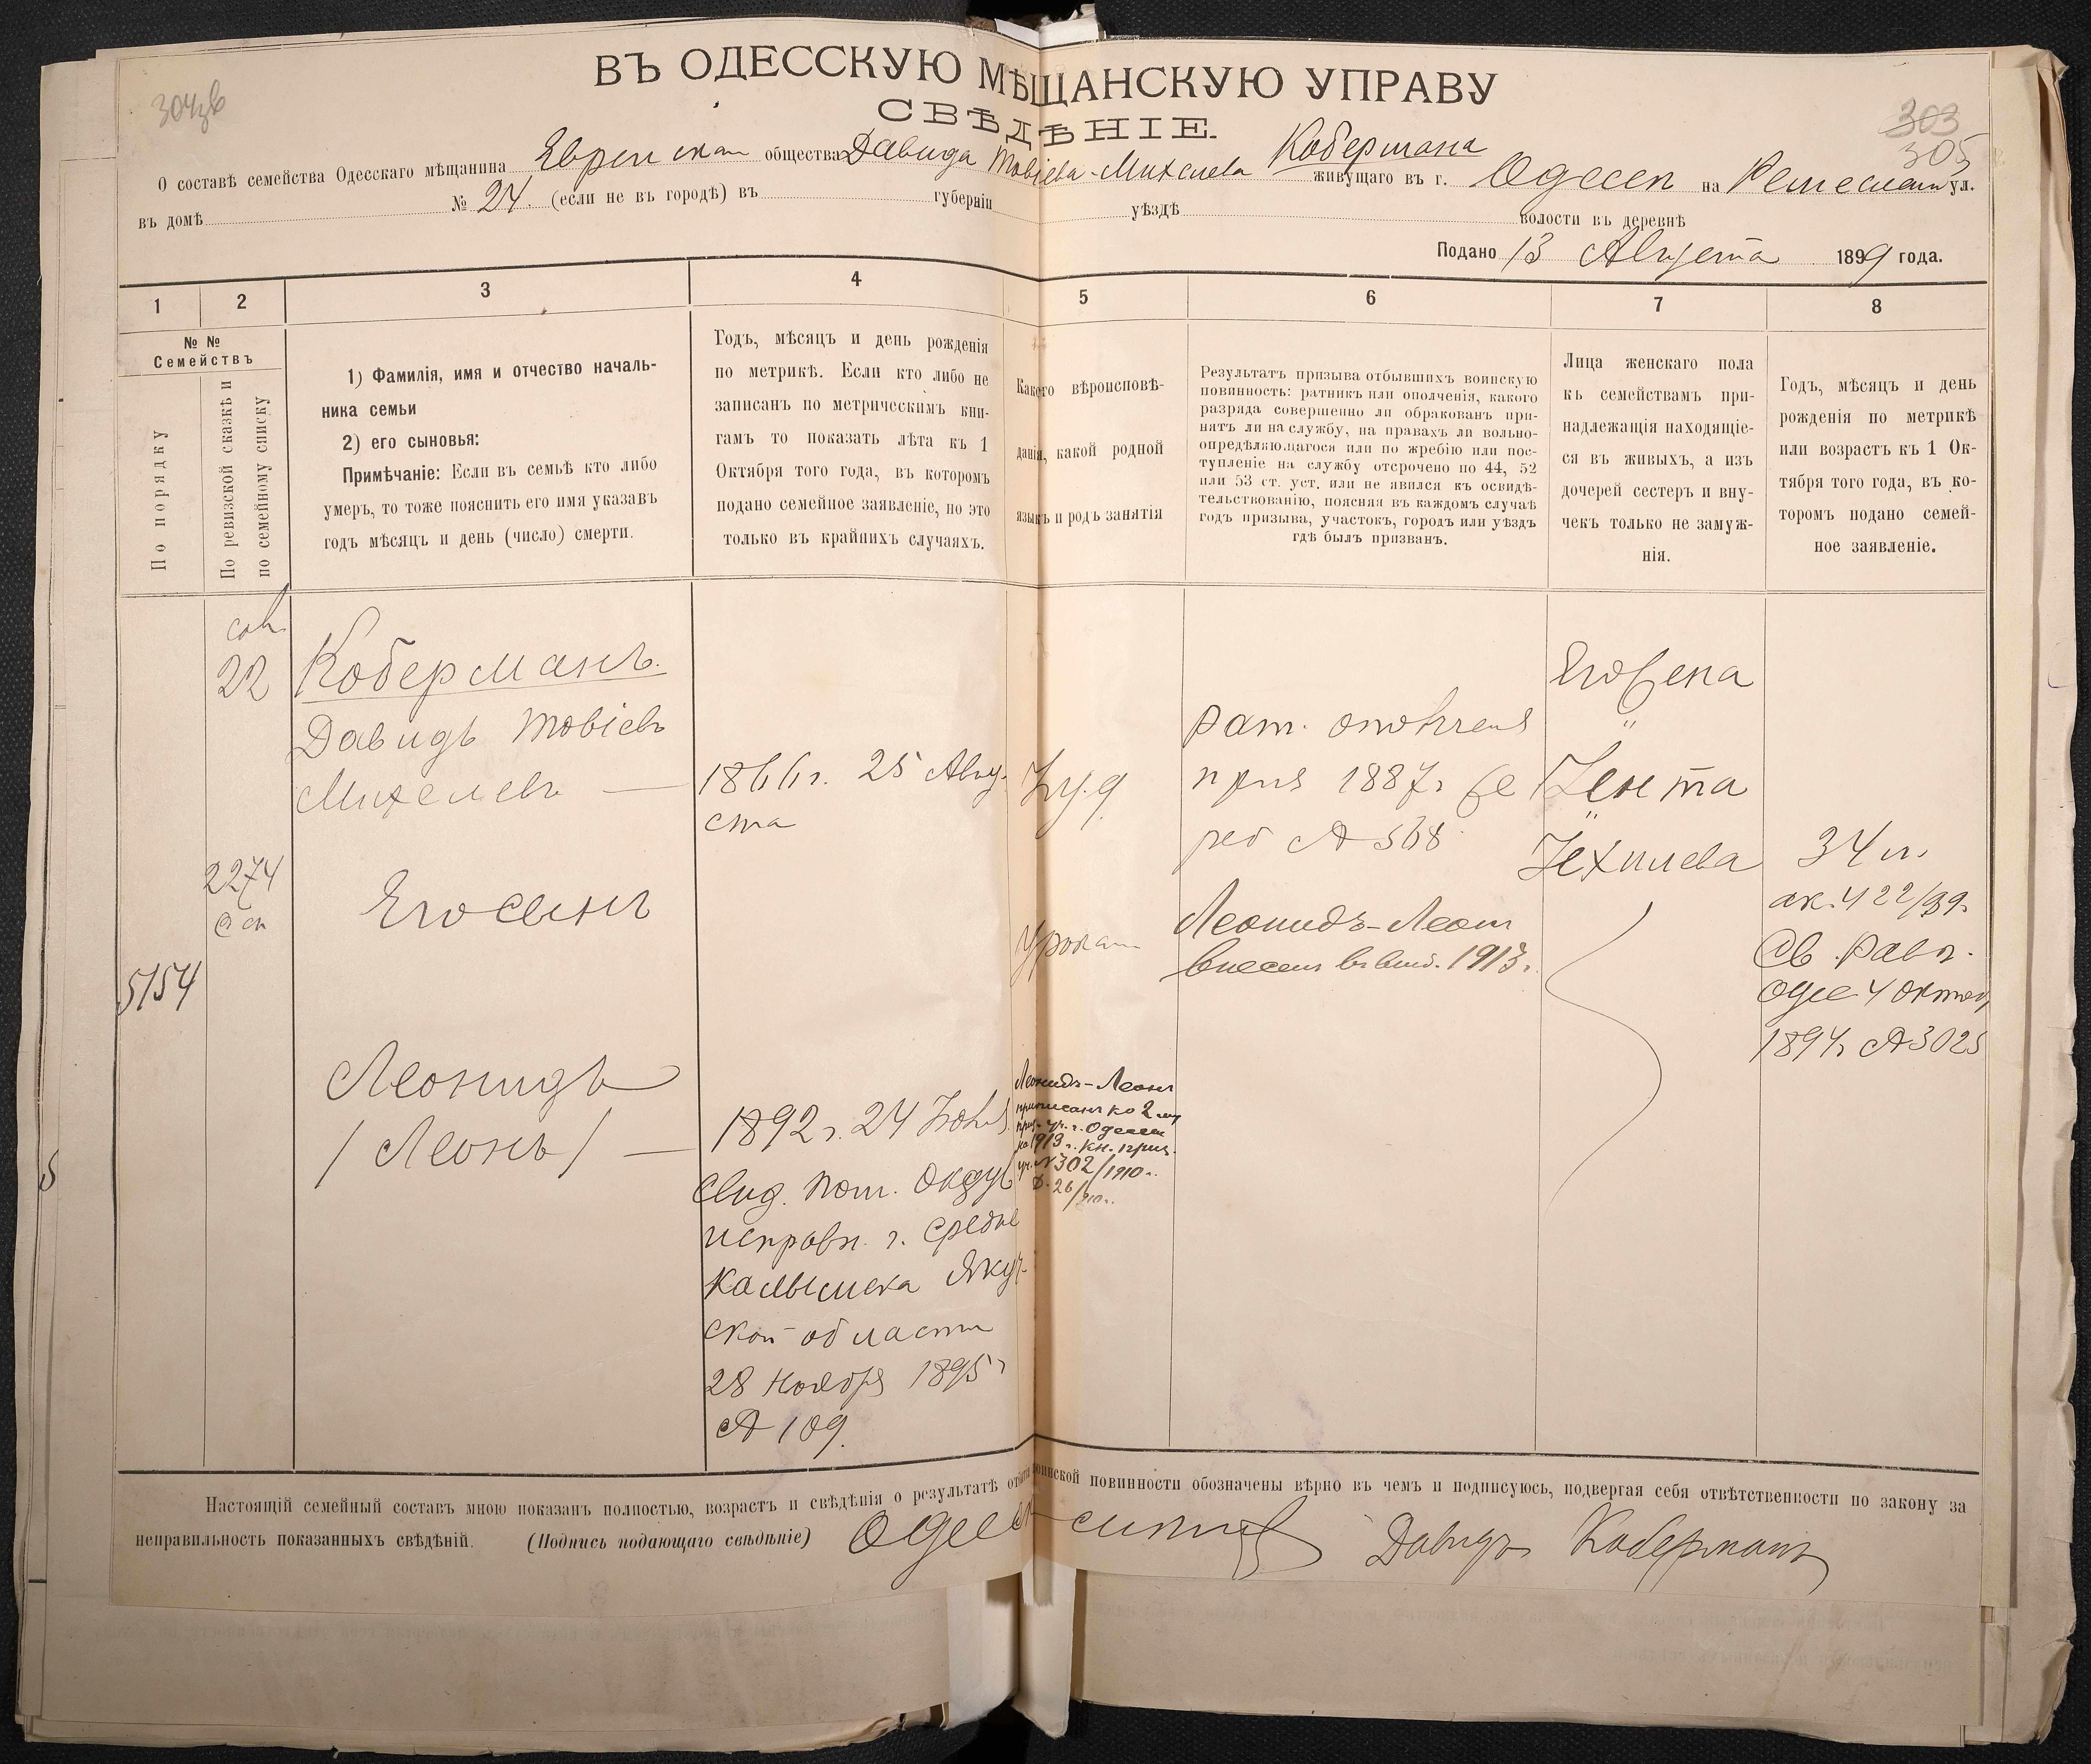 304 зв
303
305
ВЪ ОДЕССКУЮ МѢЩАНСКУЮ УПРАВУ
СВѢДѢНІЕ.
О составѣ семейства Одесскаго мѣщанина Еврейскаго общества Давида Товіева-Михелева Кобермана живущаго въ г. Одессѣ на Ремеслен ул.
въ домѣ № 24. (если не въ городѣ) въ губерніи уѣздѣ волости въ деревнѣ
Подано 13 Августа 1899 года.
1 2 3 4 5 6 7 8
№ №
Семействъ
По порядку
По ревизской сказкѣ и
по семейному списку
1) Фамилія, имя и отчество началь-
ника семьи
2) его сыновья:
Примѣчаніе: Если въ семьѣ кто либо
умеръ, то тоже пояснить его имя указавъ
годъ мѣсяцъ и день (число) смерти.
Годъ, мѣсяцъ и день рожденія
по метрикѣ. Если кто либо не
записанъ по метрическимъ кни-
гамъ то показать лѣта къ 1
Октября того года, въ которомъ
подано семейное заявленіе, но это
только въ крайнихъ случаяхъ.
Какого вѣроисповѣ-
данія, какой родной
языкъ и родъ занятія
Результатъ призыва отбывшихъ воинскую
повинность: ратникъ или ополченія, какого
разряда совершенно ли обракованъ при-
нятъ ли на службу, на правахъ ли вольно-
опредѣляющагося или по жребію или пос-
тупленіе на службу отсрочено по 44, 52
или 53 ст. уст. или не явился къ освидѣ-
тельствованію, поясняя въ каждомъ случаѣ
годъ призыва, участокъ, городъ или уѣздъ
гдѣ былъ призванъ.
Лица женскаго пола
къ семействамъ при-
надлежащія находящіе-
ся въ живыхъ, а изъ
дочерей сестеръ и вну-
чекъ только не замуж-
нія.
Годъ, мѣсяцъ и день
рожденія по метрикѣ
или возрастъ къ 1 Ок-
тября того года, въ ко-
торомъ подано семей-
ное заявленіе.
22
Коберманъ.
Давидъ Товіевъ
Михелевъ —
2274
Его сынъ
5154
Леонидъ
/Леонъ/ —
1866 г. 25 Авгу-
ста
1892 г. 24 Іюня
Свид. Пом. Окруж
исправн. г. Средне
Калымска Яку-
ской области
28 Ноября 1895 г
№ 109.
Іуд
Леонидъ-Леонъ
приписанъ ко 2 му
приз. уч. г. Одессы
на 1913 г. кн. приз.
уч. № 302/1910 г.
Д. 26/910 г.
Рат. ополчен
приз 1887 г
№ 568
Леонидъ-Леонъ
внесенъ въ 1913 г.
Его жена
"
Зента
"
Іехилева
34 л.
ак. 422/99.
Св. Равв.
Одес 4 Октяб
1894 г. № 3025
Настоящій семейный составъ мною показанъ полностью, возрастъ и свѣдѣнія о результатѣ отбытія воинской повинности обозначены вѣрно въ чемъ и подписуюсь, подвергая себя отвѣтственности по закону за
неправильность показанныхъ свѣдѣній. (Подпись подающаго свѣдѣніе) Одесск Давидъ Коберманъ